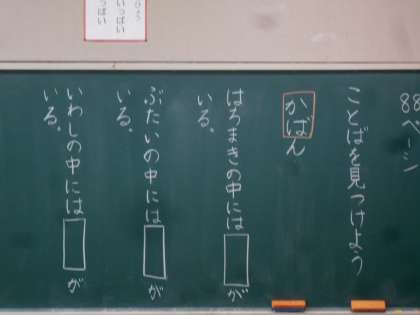 88ページ
ことばを見つけよう
かばん
はちまきの中には
がいる。
ぶたいの中には
がいる。
いわしの中には
がいる。
いっぱい
っぱい